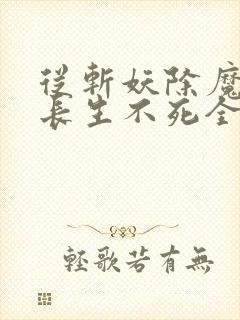 從斬妖除魔
長生不死全
輕歌若有無